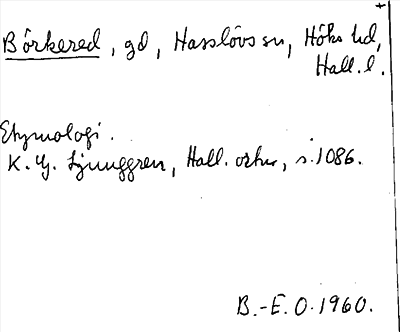 Börkered, gd, Hasslövs sn, Höks hd,
Hall. l.
Etymologi.
K. G. Ljunggren, Hall. ortn, s. 1086.
B.-E. O. 1960.